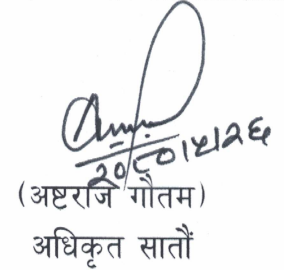 २०८०।५।२६
(अष्टराज गौतम)
अधिकृत सातौं